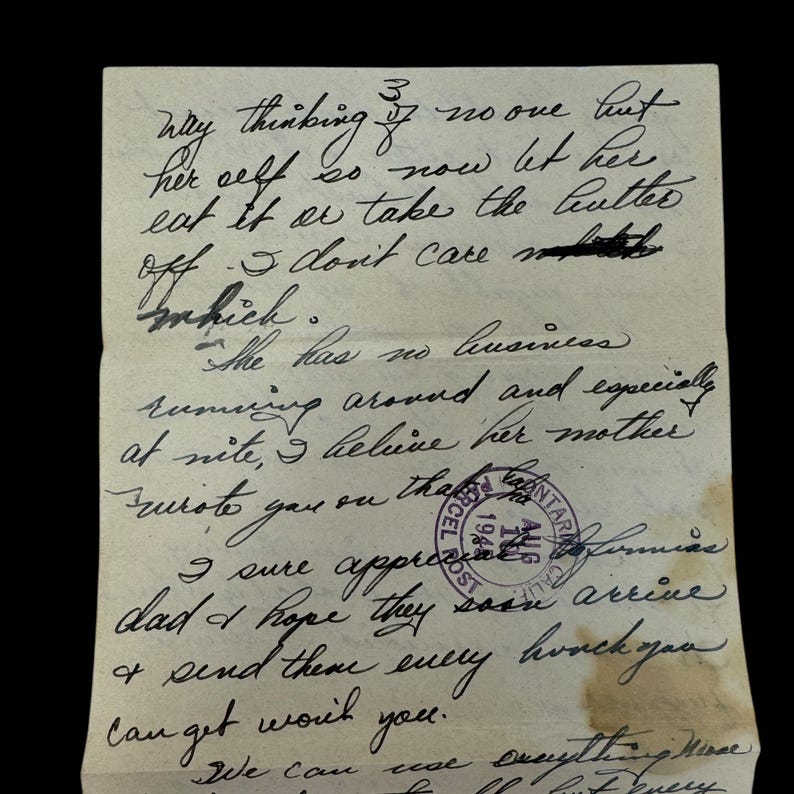 3
way thinking of no one but
her self so now let her
eat it or take the butter
off. I don't care which
which.
She has no business
running around and especially
at nite, I believe her mother
wrote you on that
I sure appreciate
dad & hope they soon arrive
& send them every hunch you
can get won't you.
We can use everything these
but every
ONTARIO, CALIF.
AUG
16
194
PARCEL POST